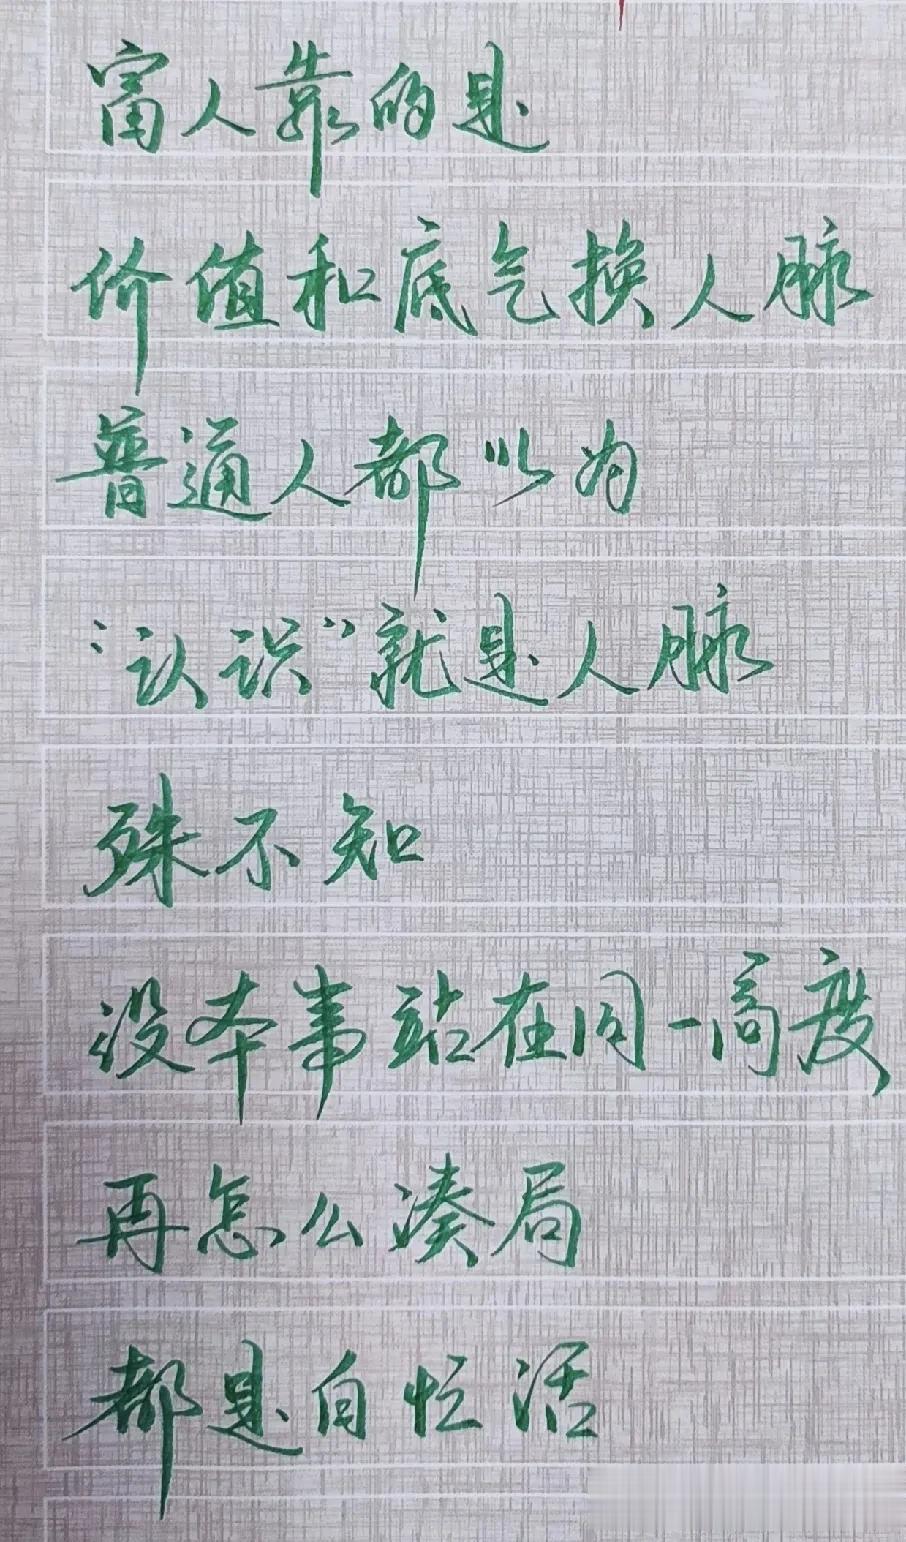 富人靠的是
价值和底气换人脉
普通人都以为
“认识”就是人脉
殊不知
没本事站在同一高度
再怎么凑局
都是白忙活